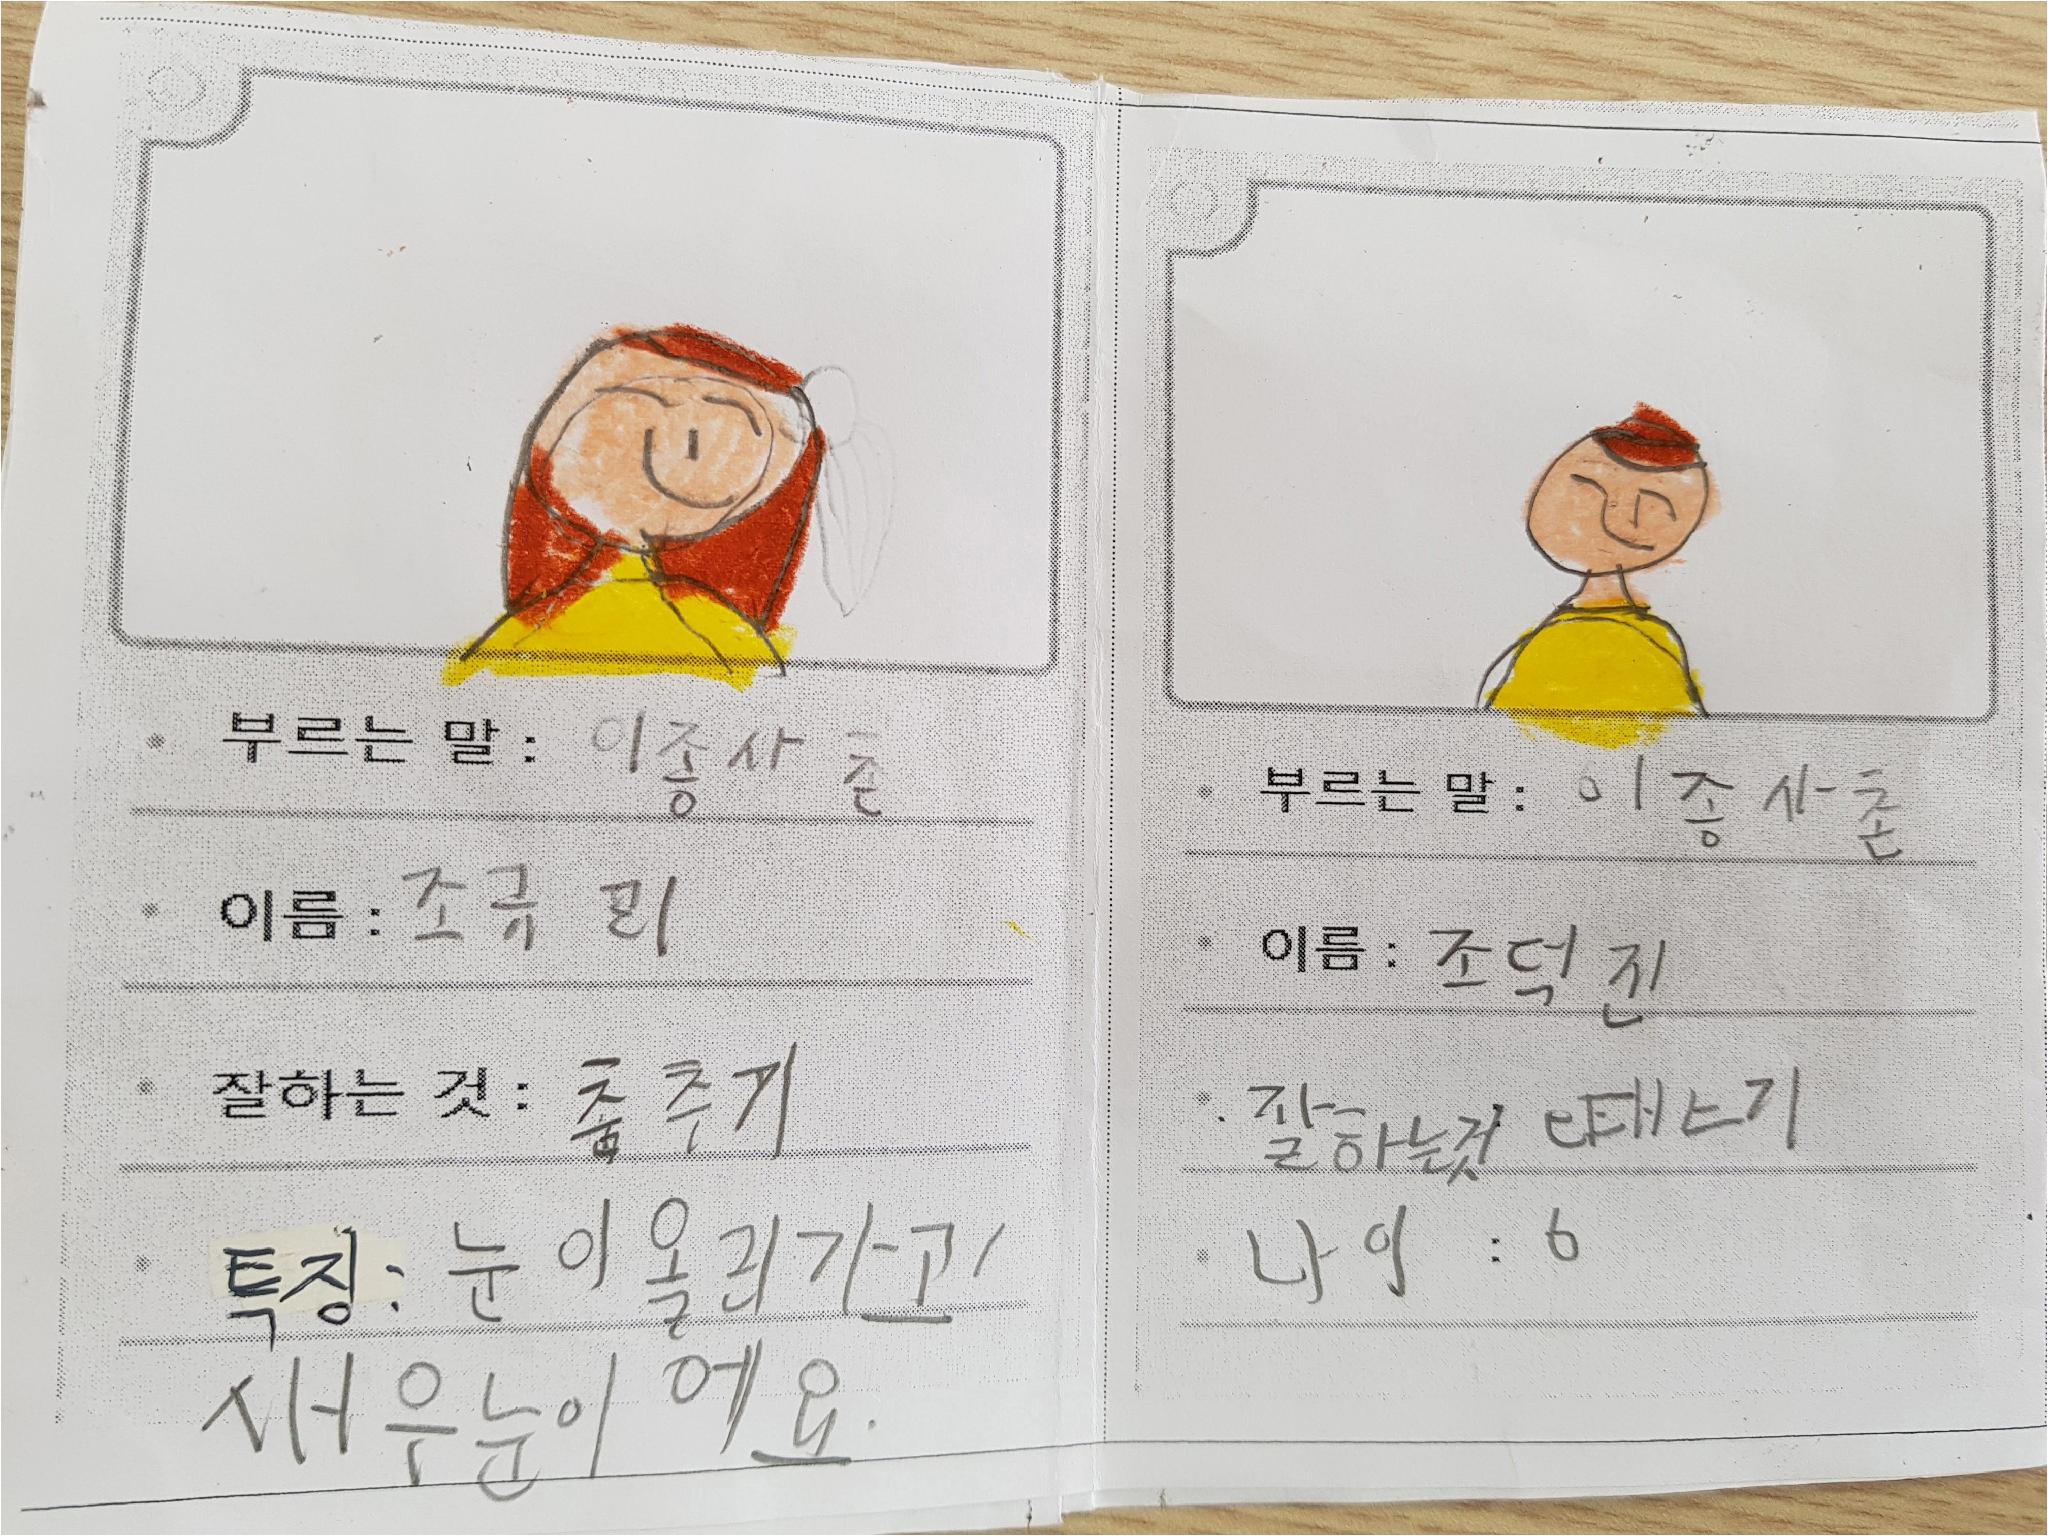 부르는 말 : 이종사촌
이름 : 조규리
잘하는 것 : 춤추기
특징 : 눈이올리가고
새우눈이에요.
부르는 말 : 이종사촌
이름 : 조덕진
잘하는것 떼쓰기
나이 : 6